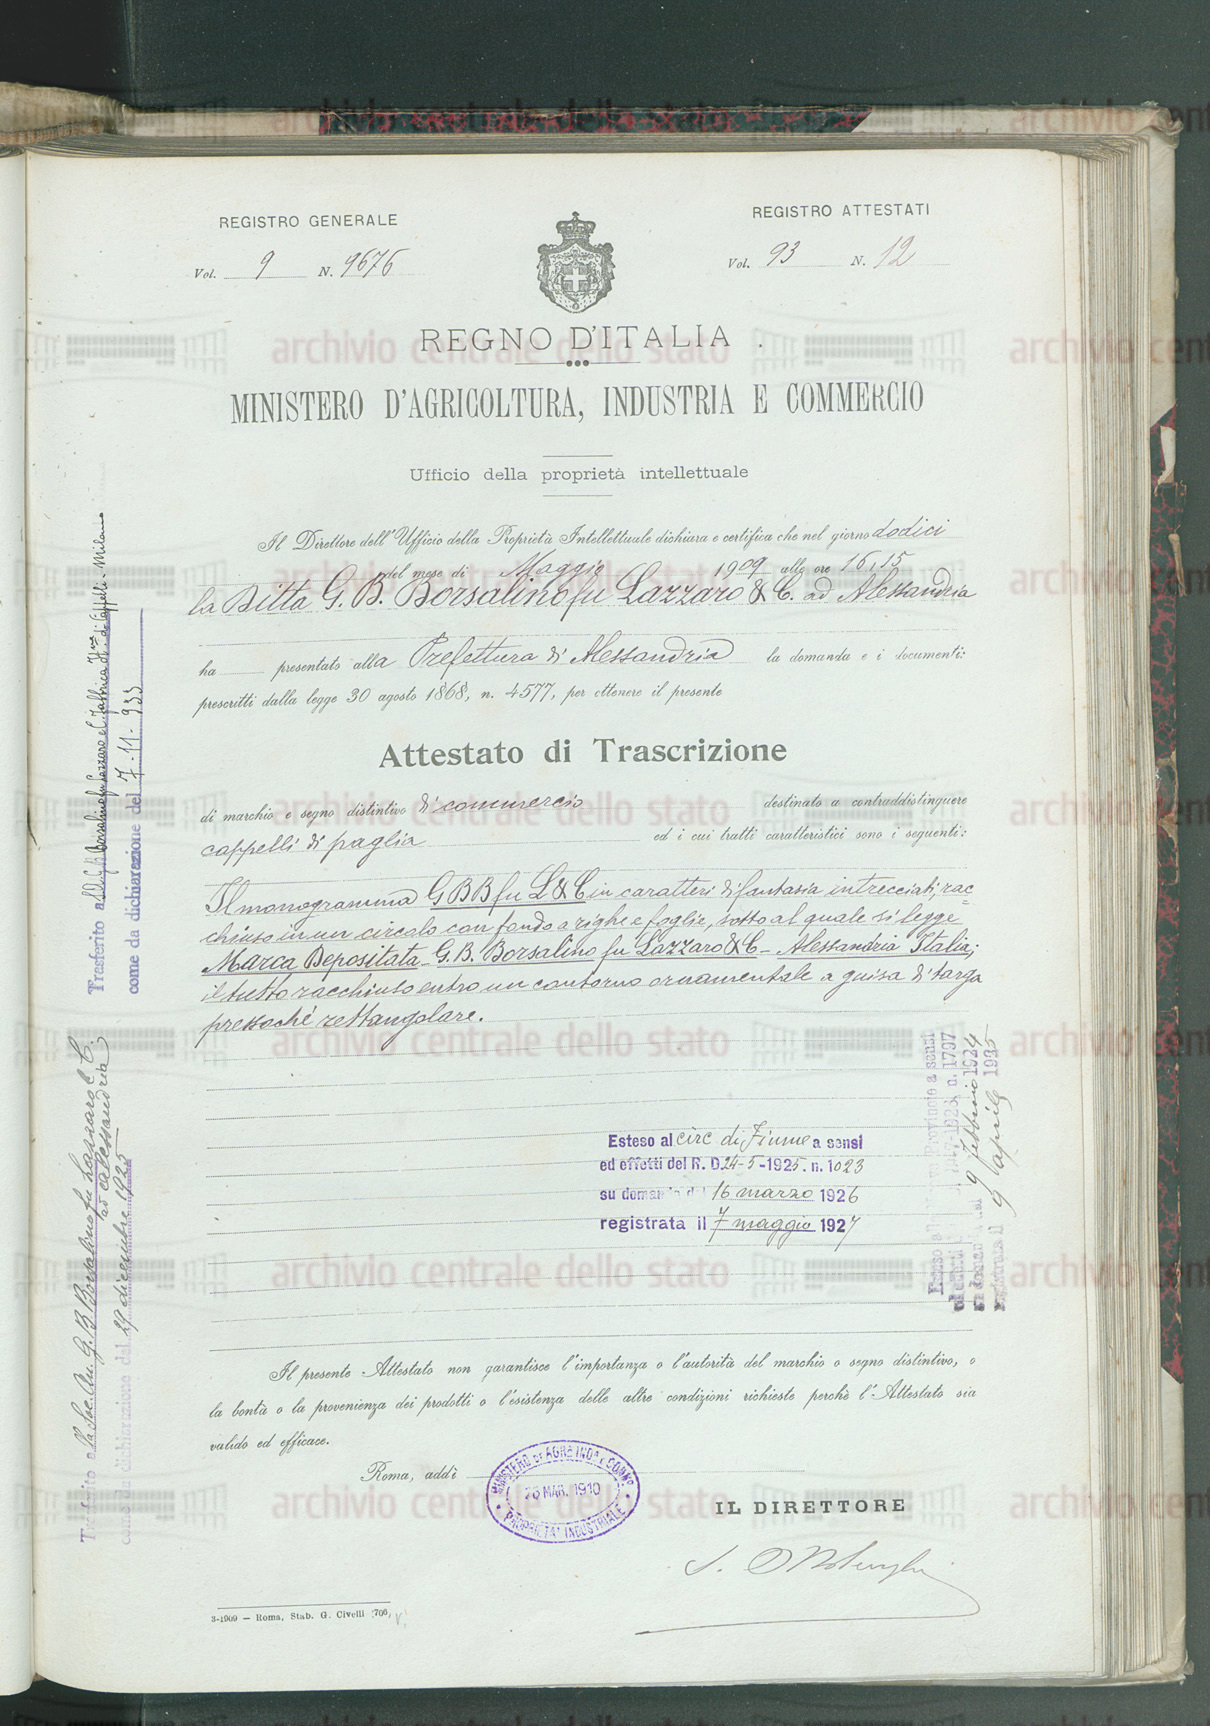 REGISTRO GENERALE
Vol. 9 N. 9676
REGISTRO ATTESTATI
Vol. 93 N. 12
REGNO D'ITALIA
MINISTERO D'AGRICOLTURA, INDUSTRIA E COMMERCIO
Ufficio della proprietà intellettuale
Il Direttore dell'Ufficio della Proprietà Intellettuale dichiara e certifica che nel giorno dodici
del mese di Maggio 1909 alle ore 16,15
la Ditta G. B. Borsalino fu Lazzaro & C. ad Alessandria
ha presentato alla Prefettura di Alessandria la domanda e i documenti:
prescritti dalla legge 30 agosto 1868, n. 4577, per ottenere il presente
Attestato di Trascrizione
di marchio e segno distintivo di commercio destinato a contraddistinguere
cappelli di paglia ed i cui tratti caratteristici sono i seguenti:
Il monogramma G B B fu L & C in caratteri di fantasia intrecciati, rac=
chiuso in un circolo con fondo a righe e foglie, sotto al quale si legge
Marca Depositata - G. B. Borsalino fu Lazzaro & C - Alessandria Italia;
il tutto racchiuso entro un contorno ornamentale a guisa di targa
pressochè rettangolare.
Esteso al circ di Fiume a sensi
ed effetti del R. D. 24-5-1925. n. 1023
su domanda del 16 marzo 1926
registrata il 7 maggio 1927
Esteso alle Provincie a sensi
ed effetti 1923, n. 1797
su domanda del 9 febbraio 1924
registrata il 9 aprile 1925
Trasferito a Borsalino fu Lazzaro e C. Fabbrica di Cappelli - Milano
come da dichiarazione del 7-11-933
Trasferito alla Soc. An. G. B. Borsalino fu Lazzaro e C.
ad Alessandria
come da dichiarazione del 29 dicembre 1925
Il presente Attestato non garantisce l'importanza o l'autorità del marchio o segno distintivo, o
la bontà o la provenienza dei prodotti o l'esistenza delle altre condizioni richieste perchè l'Attestato sia
valido ed efficace.
Roma, addì
MINISTERO DI AGR. E IND. E COMM.
26 MAR. 1910
PROPRIETA' INDUSTRIALE
IL DIRETTORE
3-1909 — Roma, Stab. G. Civelli 706
archivio centrale dello stato